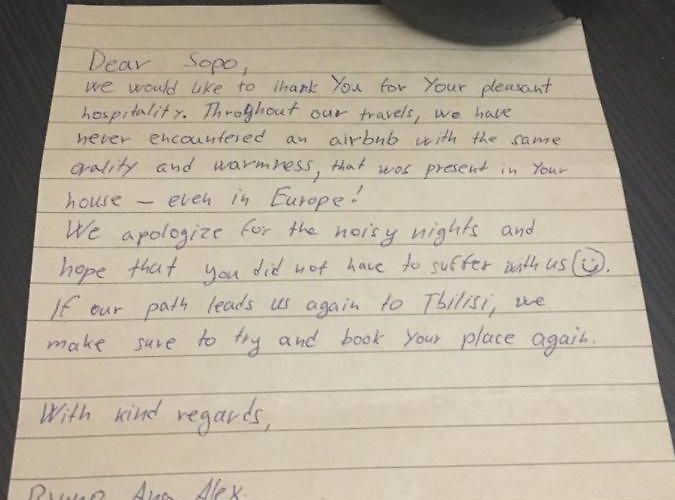 Dear Sopo,
We would like to thank You for Your pleasant
hospitality. Throghout our travels, we have
never encountered an airbnb with the same
qality and warmness, that was present in Your
house – even in Europe!
We apologize for the noisy nights and
hope that you did not have to suffer with us ☺.
If our path leads us again to Tbilisi, we
make sure to try and book Your place again.
With kind regards,
Ana Alex